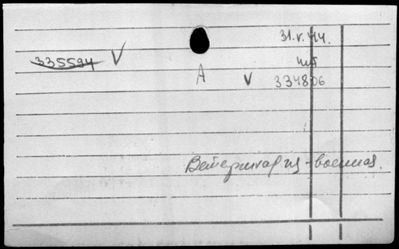 31.V.44.
335594 V
А V 334806
Ветеринария - военная.